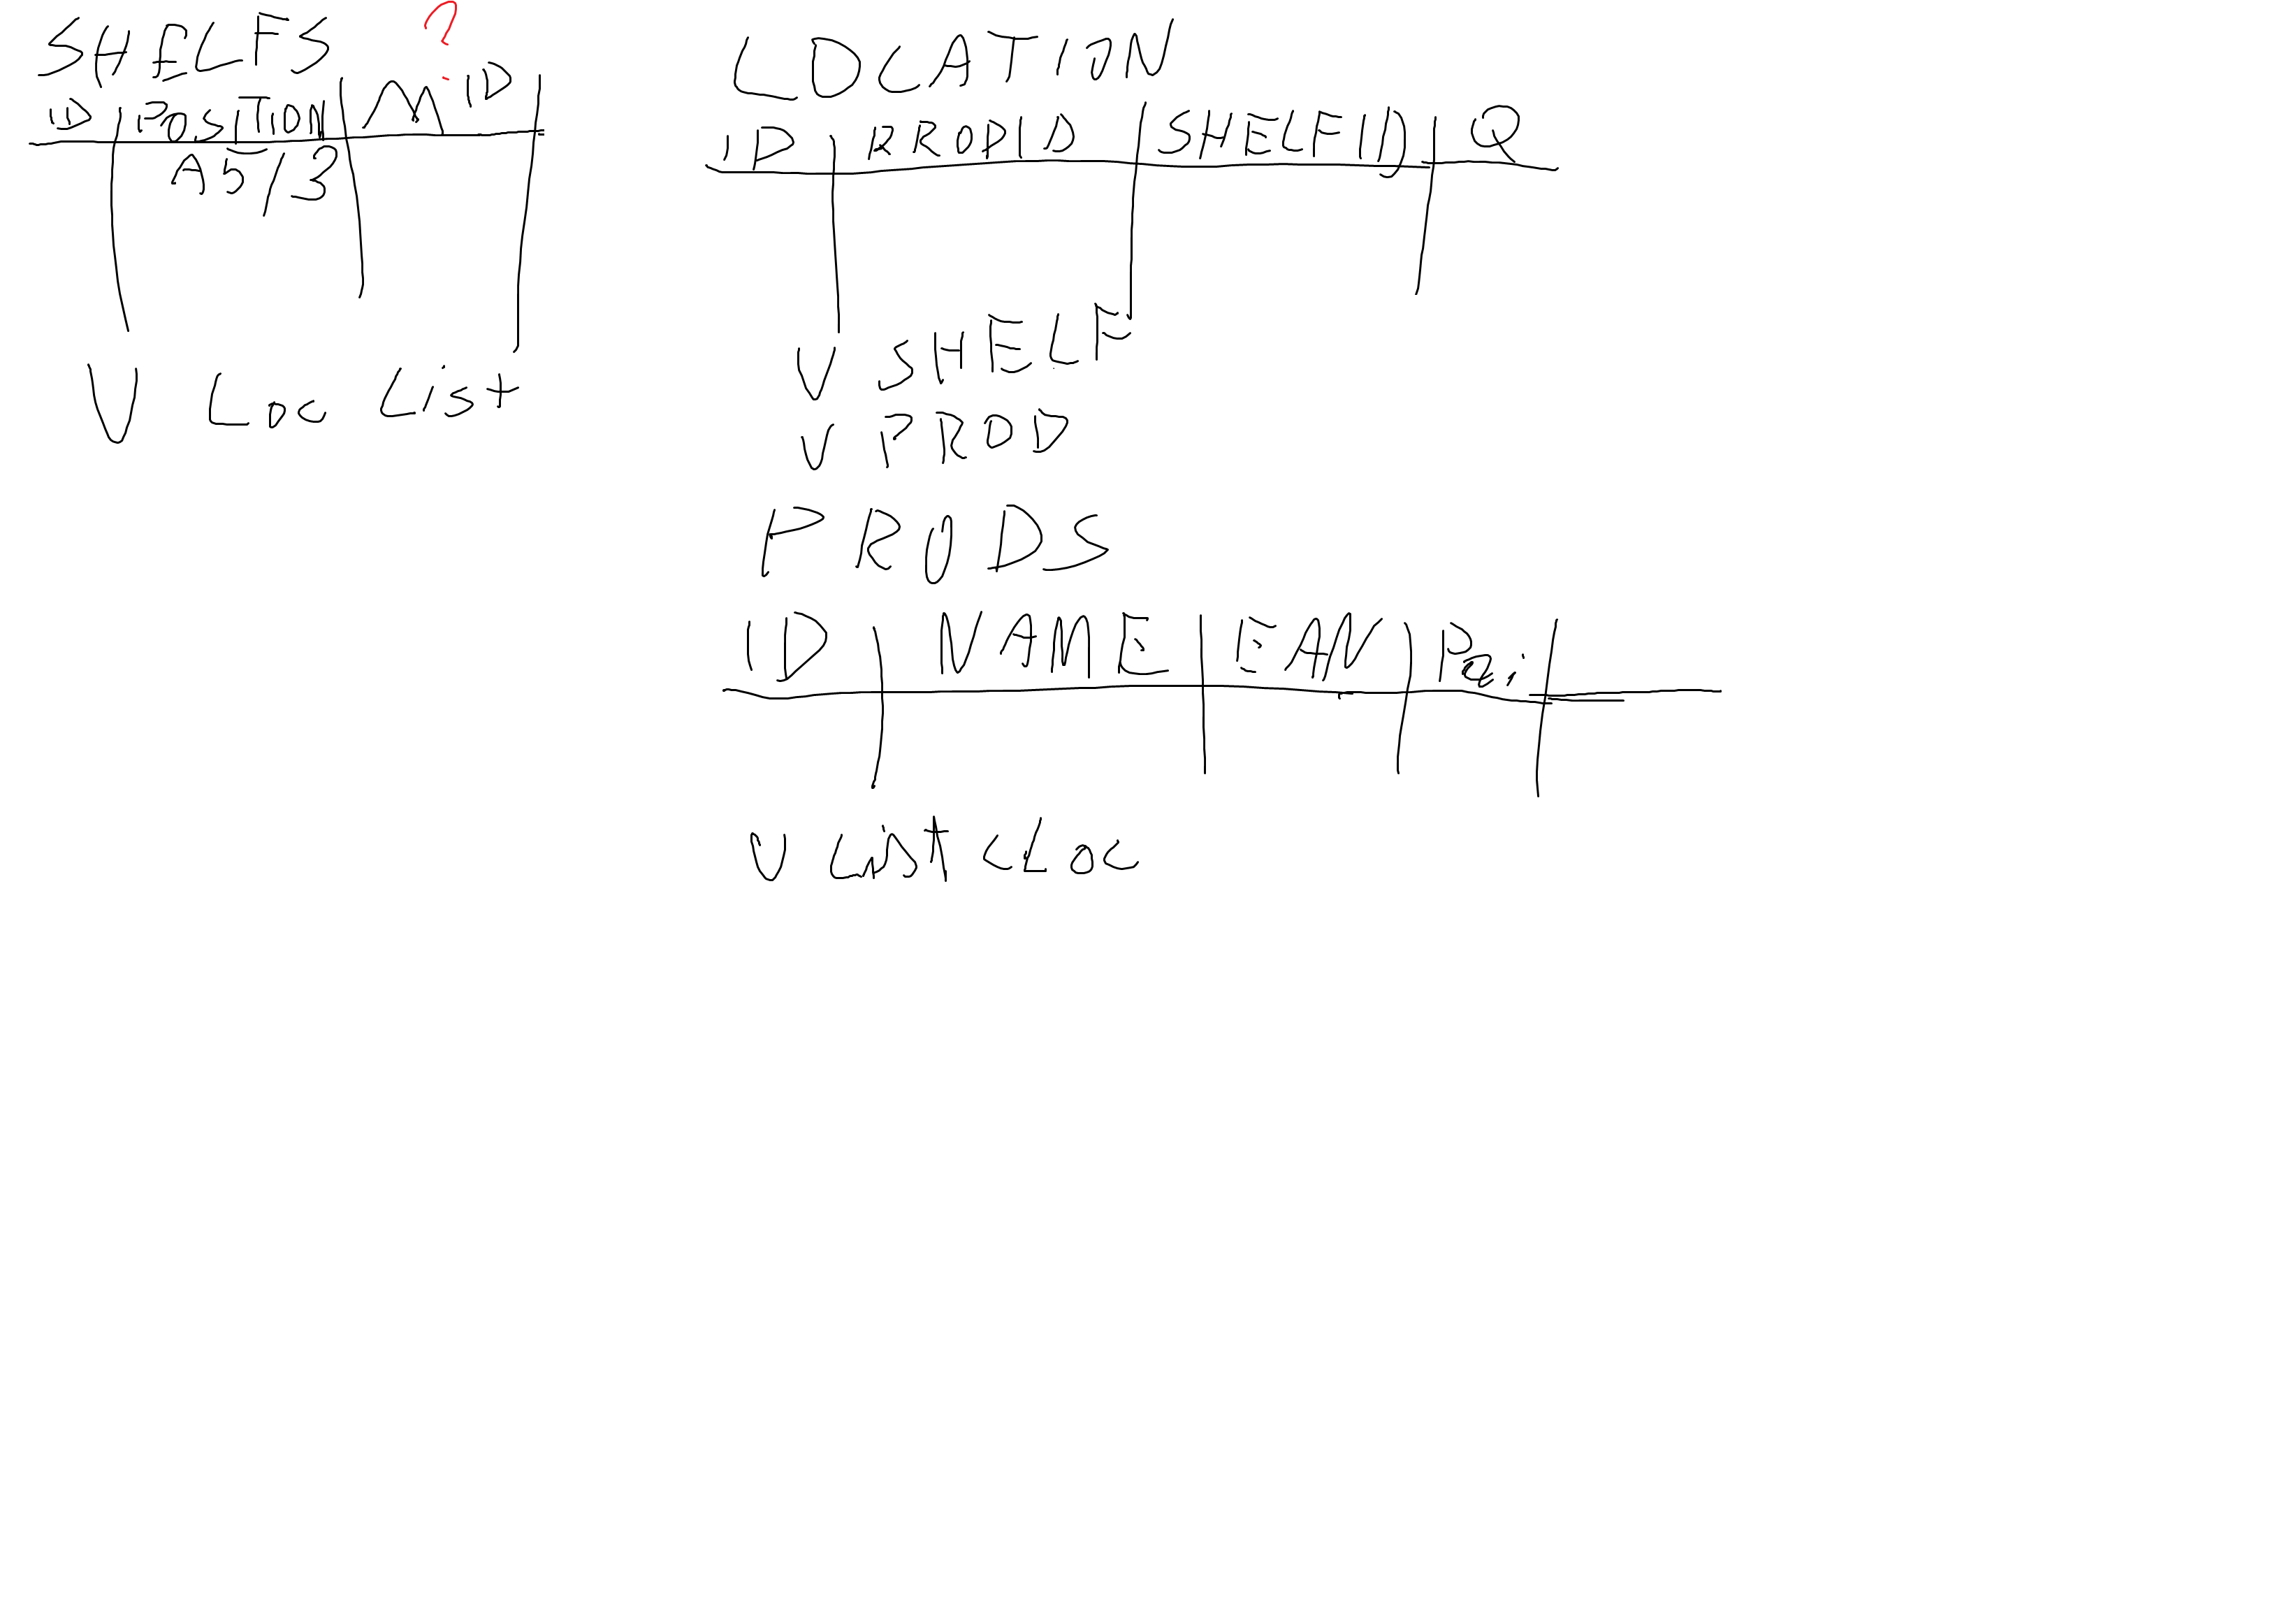 SHELFS ?
ID POSITION MID
A5/3
V Loc List
LOCATION
ID PRODID SHELFID Q
V SHELF
V PROD
PRODS
ID NAME EAN
V List<Loc